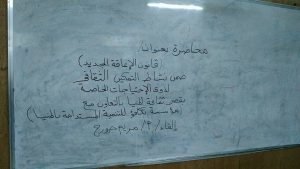 محاضرة بعنوان
(قانون الإعاقة الجديد)
ضمن نشاط التمكين الثقافى
لذوى الإحتياجات الخاصة
بقصر ثقافة المنيا بالتعاون مع
(مؤسسة تكافؤ للتنمية المستدامة بالمنيا)
إلقاء / أ/ مريم جورج